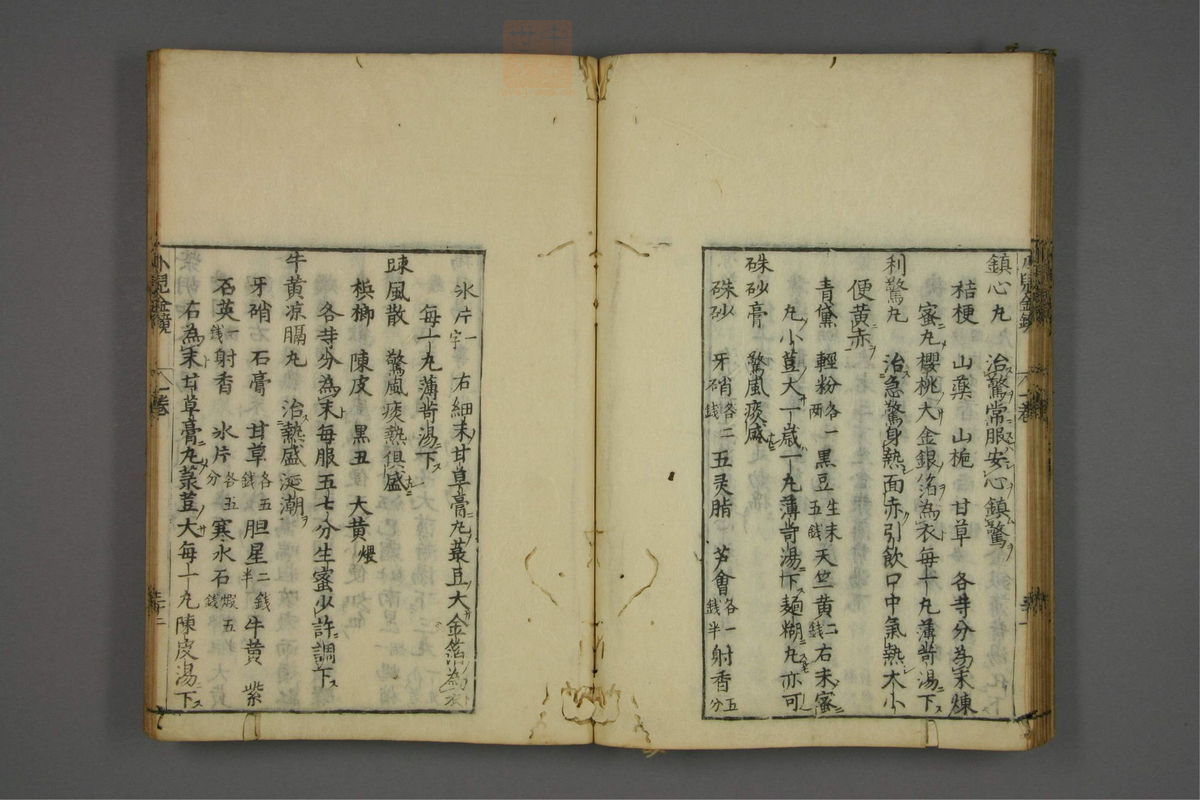 鎮心丸 治驚常服安心鎮驚
桔梗 山薬 山梔 甘草 各等分為末煉
蜜丸櫻桃大金銀箔為衣毎一丸薄苛湯下
利驚丸 治急驚身熱面赤引飲口中氣熱大小
便黄赤
青黛 輕粉各一両 黒豆生末五銭 天竺黄二銭 右末蜜
丸小荳大一歳一丸薄苛湯下麺糊丸亦可
硃砂膏 驚風痰盛
硃砂 牙硝各二銭 五灵脂 芦會各一銭半 射香五分
氷片一字 右細末甘草膏丸菉豆大金箔為衣
毎一丸薄苛湯下
踈風散 驚風痰熱俱盛
梹榔 陳皮 黒丑 大黄煨
各等分為末毎服五七分生蜜少許調下
牛黄凉膈丸 治熱盛涎潮
牙硝 石膏 甘草各五銭 胆星二銭半 牛黄 紫
石英一銭 射香 氷片各五分 寒水石煆五銭
右為末甘草膏丸菉荳大毎一丸陳皮湯下
小兒金鏡 一卷